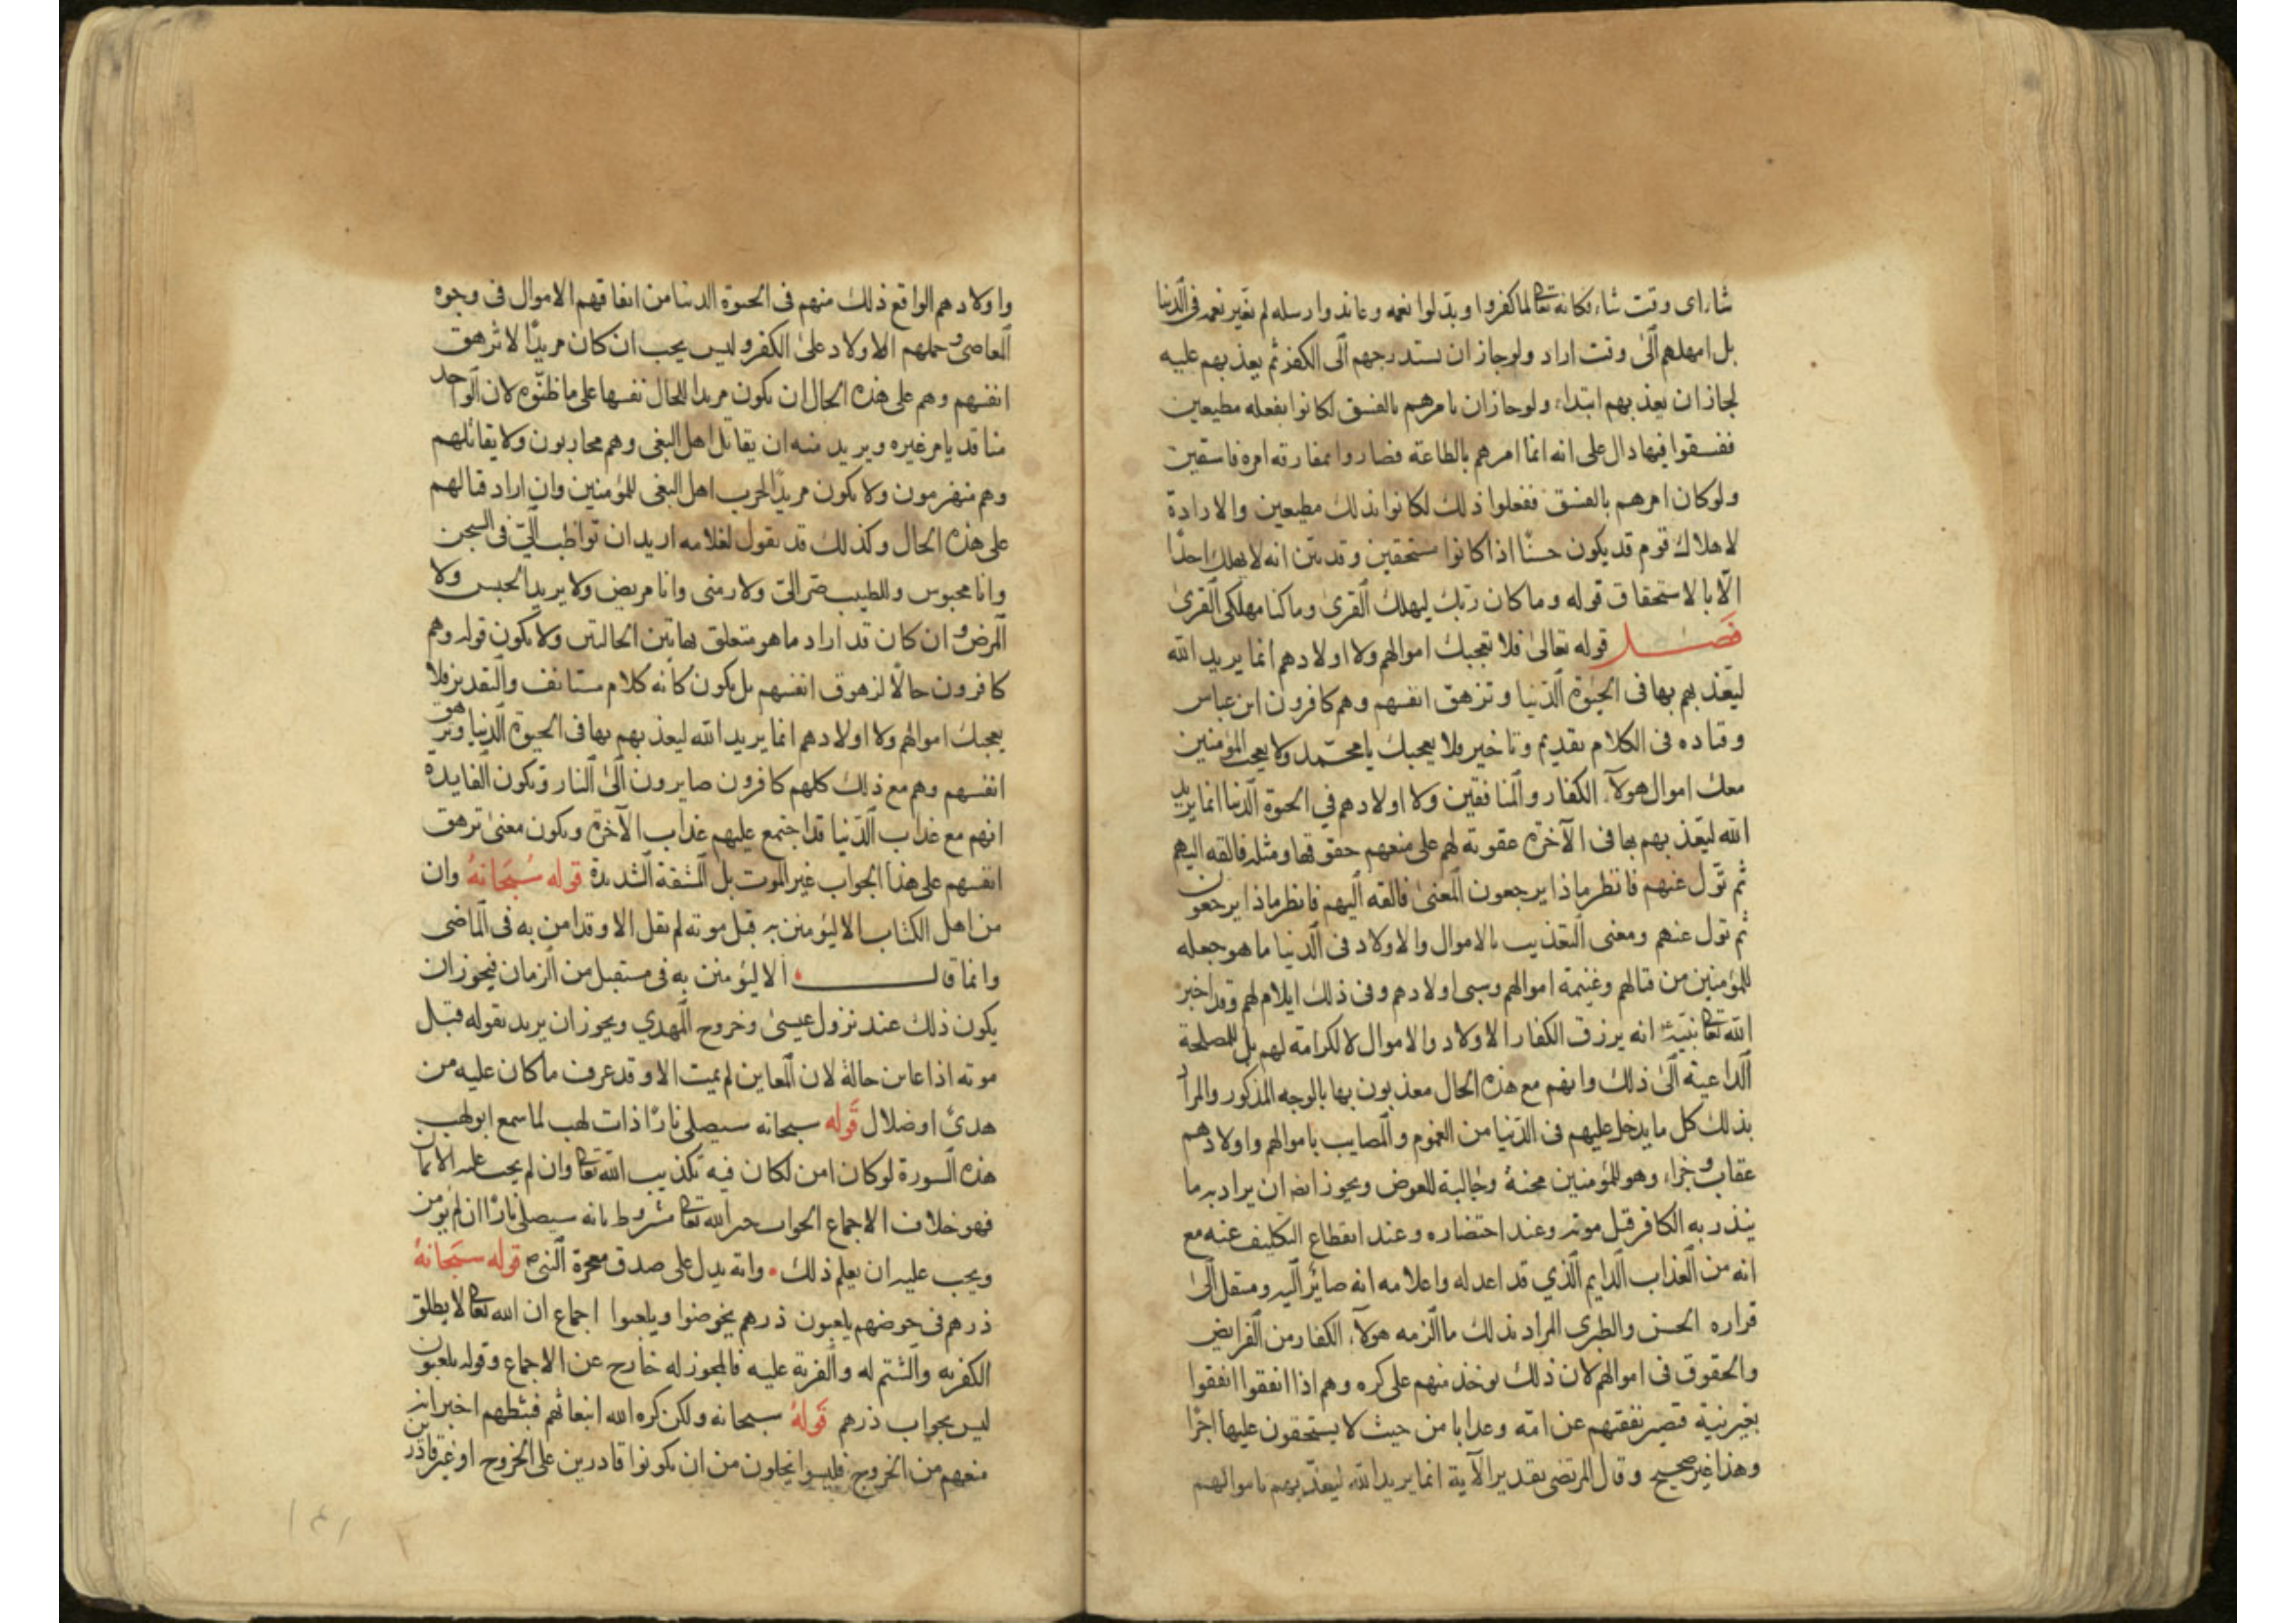 شاء اى وقت شاء فكانه تعا لما كفروا وبدلوا نعمه وعاندوا رسله لم يغير نعمه فى الدنيا
بل امهلهم الى وقت اراد ولو جاز ان يستدرجهم الى الكفر ثم يعذبهم عليه
لجاز ان يعذبهم ابتداء ولو جاز ان يامرهم بالفسق لكانوا بفعله مطيعين
ففسقوا فيها دال على انه انما امرهم بالطاعة فصاروا بمفارقة امره فاسقين
ولو كان امرهم بالفسق ففعلوا ذلك لكانوا بذلك مطيعين والارادة
لاهلاك قوم قد يكون حسنًا اذا كانوا مستحقين وقد بين انه لا يهلك احدًا
الا بالاستحقاق قوله وما كان ربك ليهلك القرى وما كنا مهلكى القرى
فصل قوله تعالى فلا تعجبك اموالهم ولا اولادهم انما يريد الله
ليعذبهم بها فى الحيوة الدنيا وتزهق انفسهم وهم كافرون ابن عباس
وقتاده فى الكلام تقديم وتاخير فلا يعجبك يا محمد ولا يعجب المؤمنين
معك اموال هولآء الكفار والمنافقين ولا اولادهم في الحيوة الدنيا انما يريد
الله ليعذبهم بها فى الآخرة عقوبة لهم على منعهم حقوقها ومثله فالقه اليهم
ثم تول عنهم فانظر ماذا يرجعون المعنى فالقه اليهم فانظر ماذا يرجعون
ثم تول عنهم ومعنى التعذيب بالاموال والاولاد فى الدنيا ما هو جعله
للمؤمنين من قتالهم وغنيمة اموالهم وسبى اولادهم وفى ذلك ايلام لهم وقد اخبر
الله تعا نبيه انه يرزق الكفار الاولاد والاموال لا لكرامة لهم بل للمصلحة
الداعية الى ذلك وانهم مع هذه الحال معذبون بها بالوجه المذكور والمراد
بذلك كل ما يدخل عليهم فى الدنيا من الغموم والمصايب باموالهم واولادهم
عقاب وجزاء وهو للمؤمنين محنة وجالبة للعوض ويجوز ايضا ان يراد به ما
ينذر به الكافر قبل موته وعند احتضاره وعند انقطاع التكليف عنه مع
انه من العذاب الدايم الذي قد اعد له واعلامه انه صائر اليه ومنتقل الى
قراره الحسن والطبرى المراد بذلك ما الزمه هولآء الكفار من الفرايض
والحقوق فى اموالهم لان ذلك يوخذ منهم على كره وهم اذا انفقوا انفقوا
بغير نية فتصير نفقتهم عن امه وعذابا من حيث لا يستحقون عليها اجرًا
وهذا غير صحيح وقال المرتضى تقدير الآية انما يريد الله ليعذبهم باموالهم
واولادهم الواقع ذلك منهم فى الحيوة الدنيا من انفاقهم الاموال فى وجوه
المعاصى وحملهم الاولاد على الكفر وليس يجب ان كان مريدًا لا تزهق
انفسهم وهم على هذه الحال ان يكون مريدا للحال نفسها على ما ظنوه لان الواحد
منا قد يامر غيره ويريد منه ان يقاتل اهل البغى وهم محاربون ولا يقاتلهم
وهم منهزمون ولا يكون مريدًا لحرب اهل البغى للمؤمنين وان اراد قتالهم
على هذه الحال وكذلك قد يقول لغلامه اريد ان تواظب الى فى السجن
وانا محبوس وللطبيب صر الى ولازمنى وانا مريض ولا يريد الحبس ولا
المرض وان كان قد اراد ما هو متعلق بهاتين الحالتين ولا يكون قوله وهم
كافرون حالًا لزهوق انفسهم بل يكون كأنه كلام مستانف والتقدير فلا
يعجبك اموالهم ولا اولادهم انما يريد الله ليعذبهم بها فى الحيوة الدنيا وتزهق
انفسهم وهم مع ذلك كلهم كافرون صايرون الى النار وتكون الفايدة
انهم مع عذاب الدنيا قد اجتمع عليهم عذاب الآخرة ويكون معنى تزهق
انفسهم على هذا الجواب غير الموت بل المشقة الشديدة قوله سبحانه وان
من اهل الكتاب الا ليؤمنن به قبل موته لم يقل الا وقد امن به فى الماضى
وانما قال الا ليؤمنن به فى مستقبل من الزمان فيجوز ان
يكون ذلك عند نزول عيسى وخروج المهدي ويجوز ان يريد بقوله قبل
موته اذا عاين حاله لان المعاين لم يميت الا وقد عرف ما كان عليه من
هدى او ضلال قوله سبحانه سيصلى نارًا ذات لهب لما سمع ابو لهب
هذه السورة لو كان امن لكان فيه تكذيب الله تعا وان لم يجب عليه الايمان
فهو خلاف الاجماع الجواب خبر الله تعا مشروط بانه سيصلى نارًا ان لم يومن
ويجب عليه ان يعلم ذلك وانه يدل على صدق معجزة النبى ص قوله سبحانه
ذرهم فى خوضهم يلعبون ذرهم يخوضوا ويلعبوا اجماع ان الله تعا لا يطلق
الكفر به والشتم له والفرية عليه فالمجوز له خارج عن الاجماع وقوله يلعبون
ليس بجواب ذرهم قوله سبحانه ولكن كره الله انبعاثهم فثبطهم اخبر انه
منعهم من الخروج فليسوا يخلون من ان يكونوا قادرين على الخروج او غير قادرين